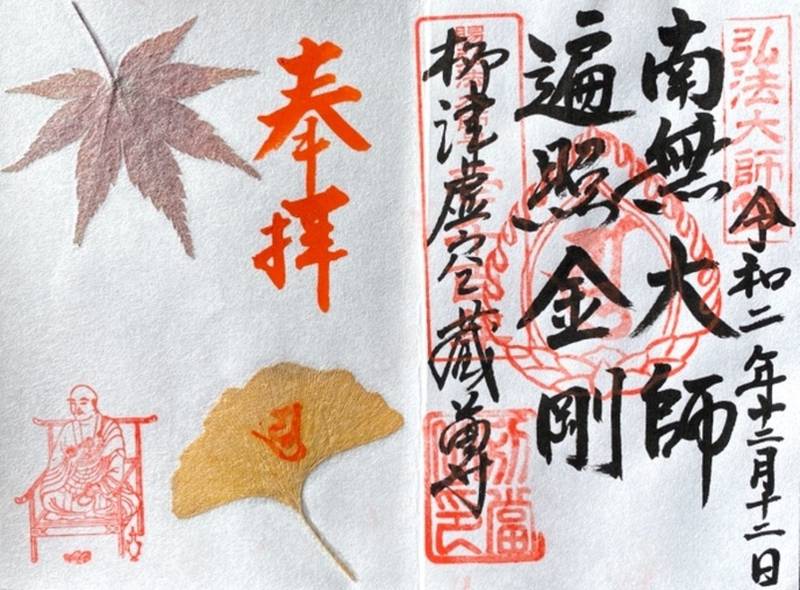 弘法大師
令和二年十二月十二日
南無大師
遍照金剛
柳津虚空蔵尊
奉拝